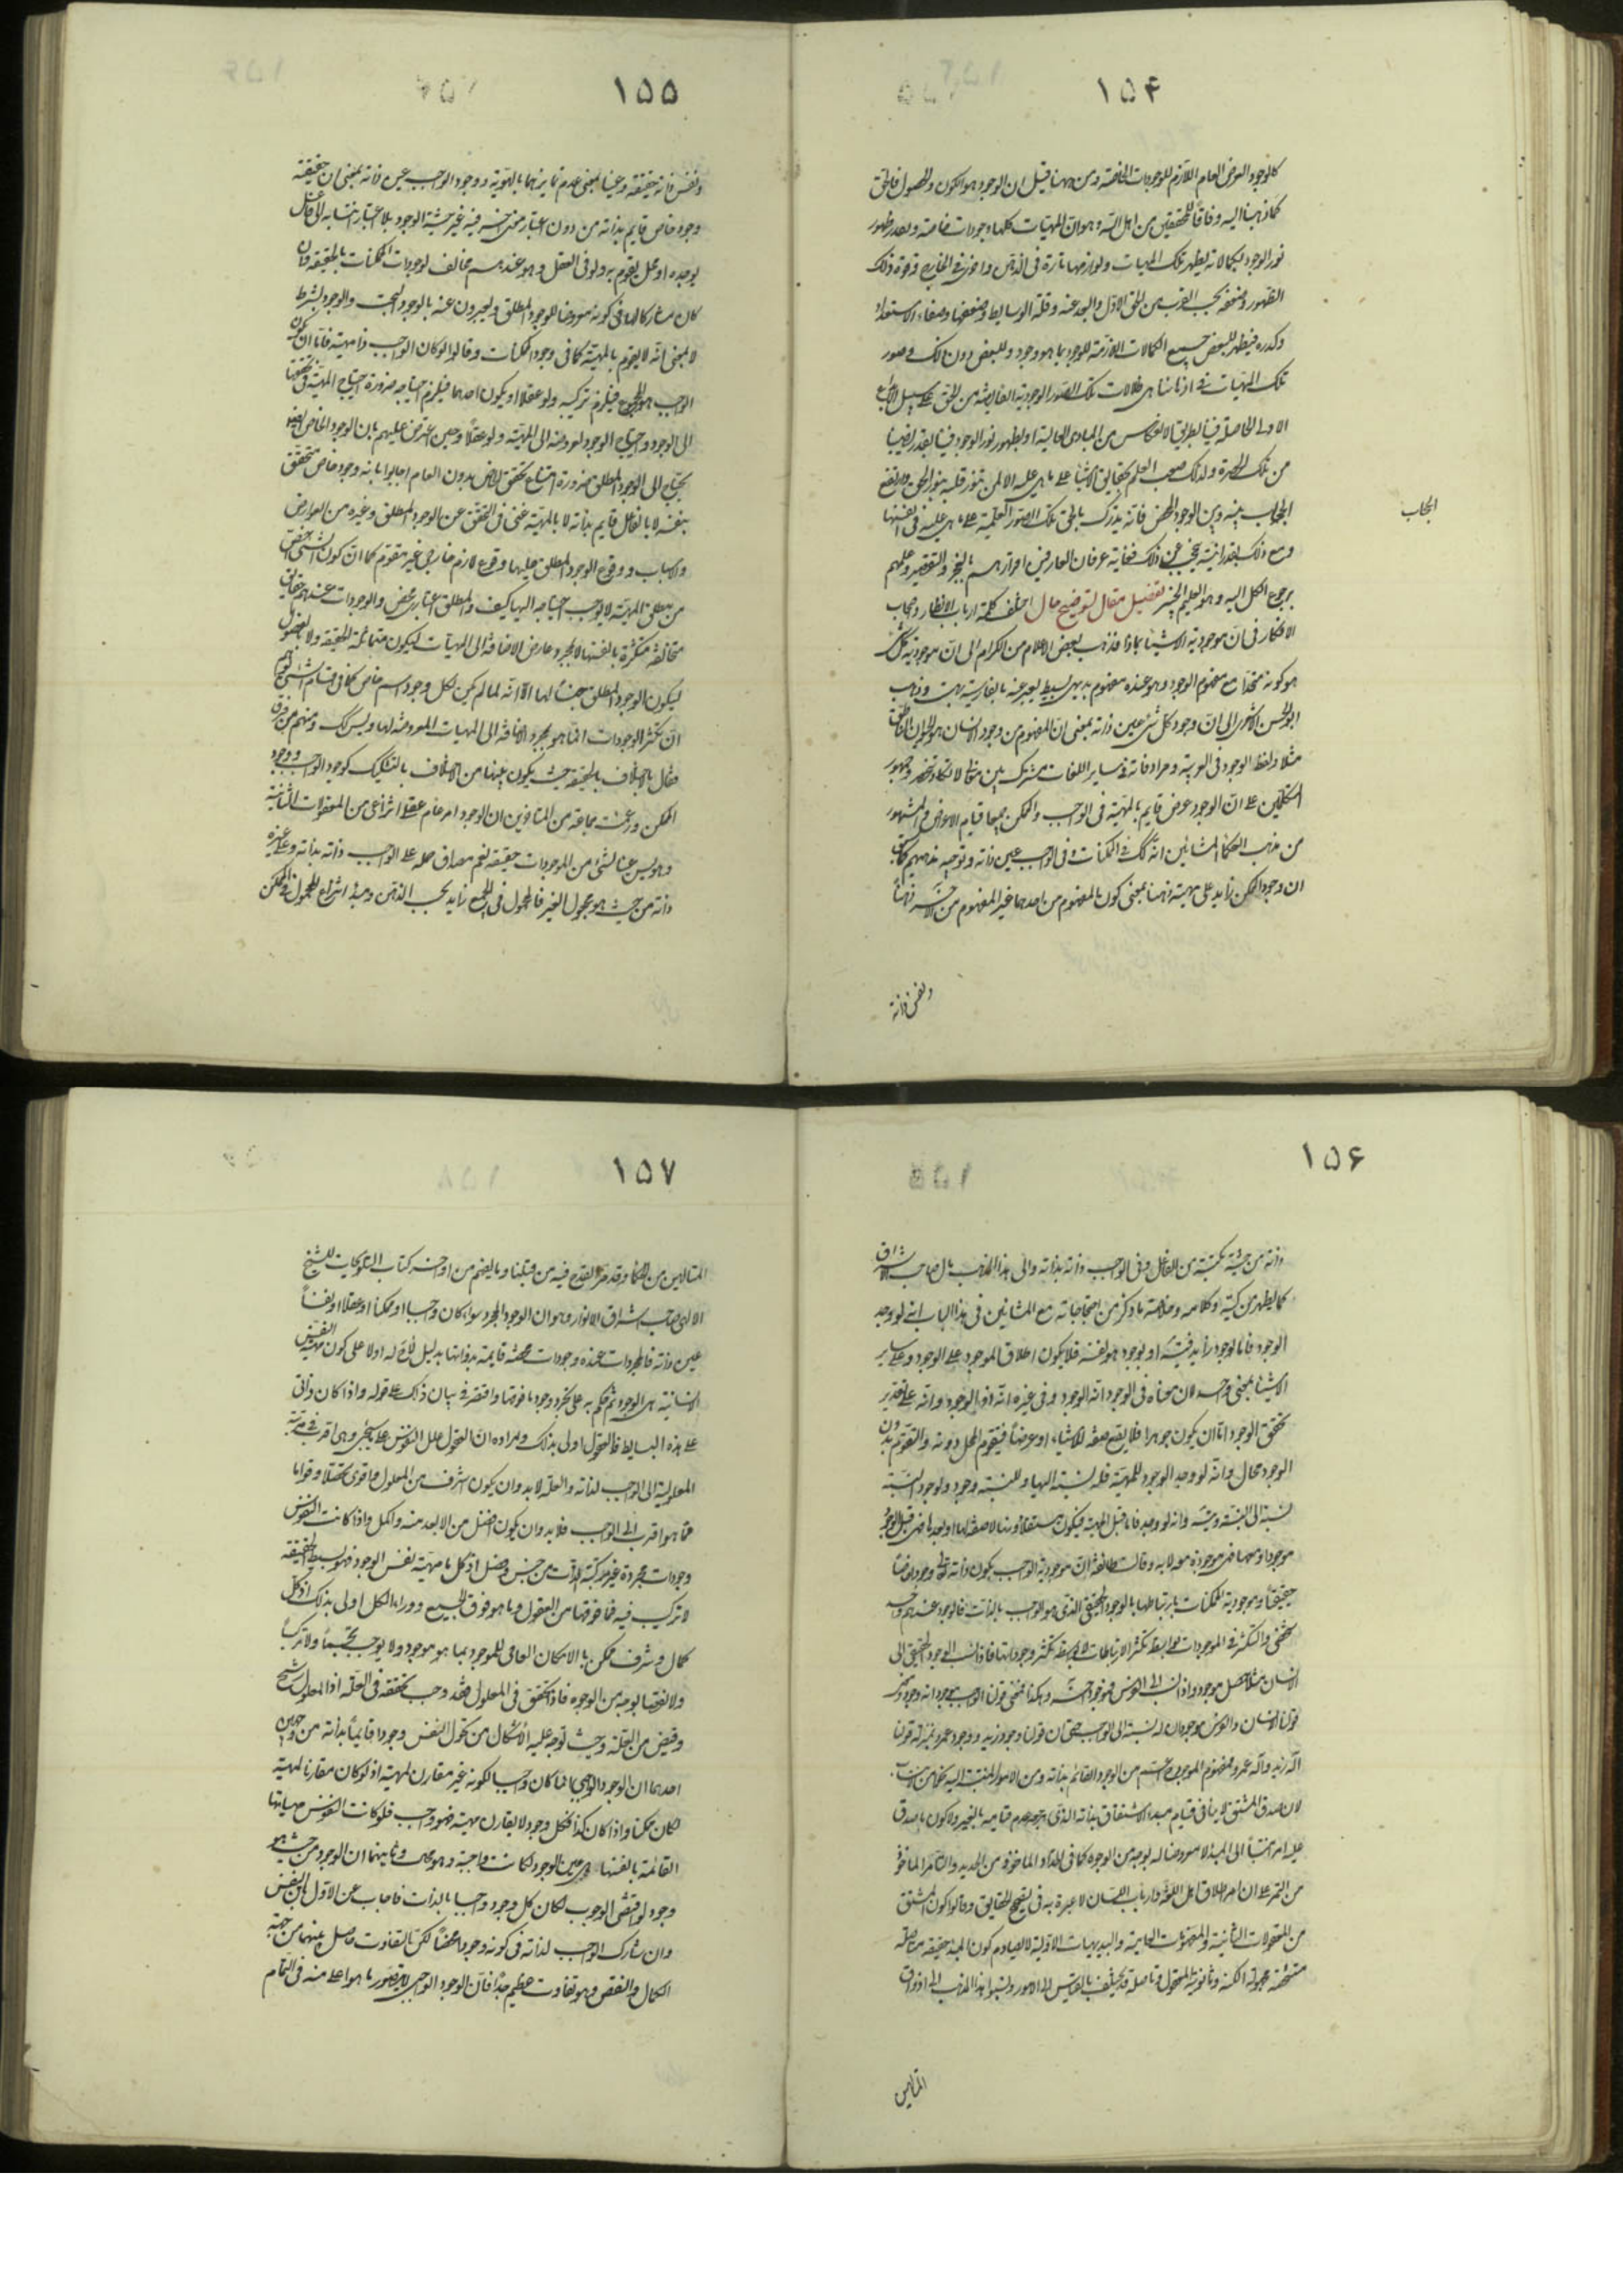 ١٥٤
كالوجود العرضى العام اللازم للوجودات الخاصة ومن ههنا قيل ان الوجود هو الكون والحصول فالحق
كما ذهبنا اليه وفاقا للمحققين من اهل الله وهو ان المهيات كلها وجودات خاصة وبقدر ظهور
نور الوجود بكمالاته يظهر تلك المهيات ولوازمها تارة فى الذهن واخرى فى الخارج وقوة ذلك
الظهور وضعفه بحسب القرب من الحق الاول والبعد عنه وقلة الوسايط وضعفها وصفاء الاستعداد
وكدره فيظهر للبعض جميع الكمالات اللازمة للوجود بما هو وجود وللبعض دون ذلك فصور
تلك المهيات فى اذهاننا هى ظلالات تلك الصور الوجودية الفايضة من الحق على سبيل الابداع
الاولى الحاصلة فينا بطريق الانعكاس من المبادى العالية او بظهور نور الوجود فينا بقدر نصيبنا
من تلك الحضرة ولذلك صعب العلم بحقايق الاشياء على ما هى عليه الا لمن تنور قلبه بنور الحق وارتفع
الحجاب بينه وبين الوجود المحض فانه يدرك بالحق تلك الصور العلمية على ما هى عليه فى انفسها
ومع ذلك بقدر انيته يحجب عن ذلك فغاية عرفان العارفين اقرارهم بالعجز والتقصير وعلمهم
برجوع الكل اليه وهو العليم الخبير تفصيل مقال لتوضيح حال اختلف كلمة ارباب الانظار واصحاب
الافكار فى ان موجودية الاشياء بماذا فذهب بعض الاعلام من الكرام الى ان موجودية كل شئ
هو كونه متحدا مع مفهوم الوجود وهو عنده مفهوم بديهى بسيط يعبر عنه بالفارسية بهست وذهب
ابو الحسن الاشعرى الى ان وجود كل شئ عين ذاته بمعنى ان المفهوم من وجود الانسان هو الحيوان الناطق
مثلا ولفظ الوجود فى العربية ومرادفاته فى ساير اللغات مشترك بين معان لا تكاد تنحصر وجمهور
المتكلمين على ان الوجود عرض قايم بالمهية فى الواجب والممكن جميعا قيام الاعراض والمشهور
من مذهب الحكماء المشائين انه كك فى الممكنات وفى الواجب عين ذاته وتوجيه مذهبهم كما سبق
ان وجود الممكن زايد على مهيته ذهنا بمعنى كون المفهوم من احدهما غير المفهوم من الاخر ذهنا
ونفس ذاته
الحجاب
١٥٥
ونفس ذاته حقيقة وعينا بمعنى عدم تمايزهما بالهوية ووجود الواجب عين ذاته بمعنى ان حقيقته
وجود خاص قايم بذاته من دون اعتبار معنى اخر فيه غير حيثية الوجود بلا اعتبار انتسابه الى فاعل
يوجده او محل يقوم به ولو فى العقل وهو عندهم مخالف لوجودات الممكنات بالحقيقة وان
كان مشاركا لها فى كونه معروضا للوجود المطلق ويعبرون عنه بالوجود البحت والوجود بشرط
لا بمعنى انه لا يقوم بالمهية كما فى وجود الممكنات وقالوا لو كان الواجب ذا مهية فاما ان يكون
الواجب هو المجموع فيلزم تركبه ولو عقلا او يكون احدهما فيلزم احتياجه ضرورة احتياج المهية فى تحققها
الى الوجود واحتياج الوجود لعروضه الى المهية ولو عقلا وحين اعترض عليهم بان الوجود الخاص ايضا
يحتاج الى الوجود المطلق ضرورة امتناع تحقق الخاص بدون العام اجابوا بانه وجود خاص متحقق
بنفسه لا بالفاعل قايم بذاته لا بالمهية غنى فى التحقق عن الوجود المطلق وغيره من العوارض
والاسباب ووقوع الوجود المطلق عليها وقوع لازم خارجى غير مقوم كما ان كون الشئ اخص
من مطلق المهية لا يوجب احتياجه اليها كيف والمطلق اعتبارى محض والوجودات عندهم حقايق
متخالفة متكثرة بانفسها لا بمجرد عارض الاضافة الى المهيات ليكون متماثلة الحقيقة ولا بالفصول
ليكون الوجود المطلق جنسا لها الا انه لما لم يكن لكل وجود اسم خاص كما فى اقسام الشئ توهم
ان تكثر الوجودات انما هو بمجرد الاضافة الى المهيات المعروضة لها وليس كك ومنهم من فرق
فقال بالاختلاف بالحقيقة حيث يكون بينها من الاختلاف بالتشكيك كوجود الواجب ووجود
الممكن وزعمت جماعة من المتاخرين ان الوجود امر عام عقلى انتزاعى من المعقولات الثانية
وهو ليس عينا لشئ من الموجودات حقيقة نعم مصداق حمله على الواجب ذاته بذاته وعلى غيره
ذاته من حيث هو مجعول الغير فالمحمول فى الجميع زايد بحسب الذهن ومبدء انتزاع المحمول فى الممكن
١٥٦
ذاته من حيثية مكتسبة من الفاعل وفى الواجب ذاته بذاته والى هذا المذهب مال صاحب الاشراق
كما يظهر من كتبه وكلامه وخلاصة ما ذكر من احتجاجاته مع المشائين فى هذا الباب انه لو وجد
الوجود فاما بوجود زايد فيتسلسل او بوجود هو نفسه فلا يكون اطلاق الموجود على الوجود وعلى ساير
الاشياء بمعنى واحد لان معناه فى الوجود انه الوجود وفى غيره انه ذو الوجود وانه على تقدير
تحقق الوجود اما ان يكون جوهرا فلا يقع صفة للاشياء او عرضا فيتقوم المحل دونه والتقوم بدون
الوجود محال وانه لو وجد الوجود للمهية فله نسبة اليها وللنسبة وجود ولوجود النسبة
نسبة الى النسبة ويتسلسل وانه لو وجد فاما قبل المهية فيكون مستقلا دونها لا صفة لها او بعدها فهى قبل الوجود
موجودة او معها فهى موجودة معه لا به وقالت طائفة ان موجودية الواجب بكون ذاته تعالى وجودا خاصا
حقيقيا وموجودية الممكنات بارتباطها بالوجود الحقيقى الذى هو الواجب بالذات فالوجود عندهم واحد
شخصى والتكثر فى الموجودات بواسطة تكثر الارتباطات لا بواسطة تكثر وجوداتها فاذا نسب الوجود الحقيقى الى
الانسان مثلا حصل موجود واذا نسب الى الفرس فموجود اخر وهكذا فمعنى قولنا الواجب موجود انه وجود ومعنى
قولنا الانسان والفرس موجودان له نسبة الى الواجب حتى ان قولنا وجود زيد ووجود عمرو بمنزلة قولنا
اله زيد واله عمرو ومفهوم الموجود اعم من الوجود القائم بذاته ومن الامور المنتسبة اليه نحوا من الانتساب
لان صدق المشتق لا ينافى قيام مبدء الاشتقاق بذاته الذى مرجعه عدم قيامه بالغير ولا كون ما صدق
عليه امرا منتسبا الى المبدء لا معروضا له بوجه من الوجوه كما فى الحداد الماخوذ من الحديد والتامر الماخوذ
من التمر على ان امر اطلاق اهل اللغة وارباب اللسان لا عبرة به فى تصحيح الحقايق وقالوا كون المشتق
من المعقولات الثانية والمفهومات العامية والبديهيات الاولية لا يصادم كون المبدء حقيقة متاصلة
متشخصة مجهولة الكنه وثانوية المعقول وتاصله قد يختلف بالقياس الى الامور ونسبوا هذا المذهب الى اذواق
المتالهين
١٥٧
المتالهين من الحكماء وقد مر القدح فيه من قبلنا وما يفهم من اواخر كتاب التلويحات للشيخ
الالهى صاحب اشراق الانوار وهو ان الوجود المجرد سواء كان واجبا او ممكنا او عقلا او نفسا
عين ذاته فالمجردات عنده وجودات محضة قايمة بذواتها بدليل لاح له اولا على كون مهية النفس
الانسانية هى الوجود ثم حكم به على تجرد وجود ما فوقها واقتصر فى بيان ذلك على قوله واذا كان ذاتى
على هذه البساطة فالعقول اولى بذلك ومراده ان العقول علل النفوس على ما سيجئ وهى اقرب فى مرتبة
المعلولية الى الواجب لذاته والعلة لا بد وان يكون اشرف من المعلول واقوى تحصلا وقواما
مما هو اقرب الى الواجب فلا بد وان يكون افضل من الابعد منه واكمل واذا كانت النفوس
وجودات مجردة غير مركبة الذات من جنس وفصل اذ كل ما مهيته نفس الوجود فهو بسيط الحقيقة
لا تركيب فيه فما فوقها من العقول وما هو فوق الجميع ووراء الكل اولى بذلك اذ كل
كمال وشرف ممكن بالامكان العامى للموجود بما هو موجود ولا يوجب تجسما ولا تركبا
ولا نقصا بوجه من الوجوه فاذا تحقق فى المعلول فقد وجب تحققه فى العلة اذ المعلول رشح
وفيض من العلة وحيث توجه عليه الاشكال من كون النفس وجودا قايما بذاته من وجهين
احدهما ان الوجود الواجبى انما كان واجبا لكونه غير مقارن لمهية اذ لو كان مقارنا لمهية
لكان ممكنا واذا كان كذا فكل وجود لا يقارن مهية فهو واجب فلو كانت النفوس مهياتها
القائمة بانفسها هى عين الوجود لكانت واجبة وهو محال وثانيهما ان الوجود من حيث هو
وجود لو اقتضى الوجوب لكان كل وجود واجبا بالذات فاجاب عن الاول بان النفس
وان شارك الواجب لذاته فى كونه وجودا محضا لكن التفاوت حاصل بينهما من جهة
الكمال والنقص وهو تفاوت عظيم جدا فان الوجود الواجبى لا يتصور ما هو اعلى منه فى التمام